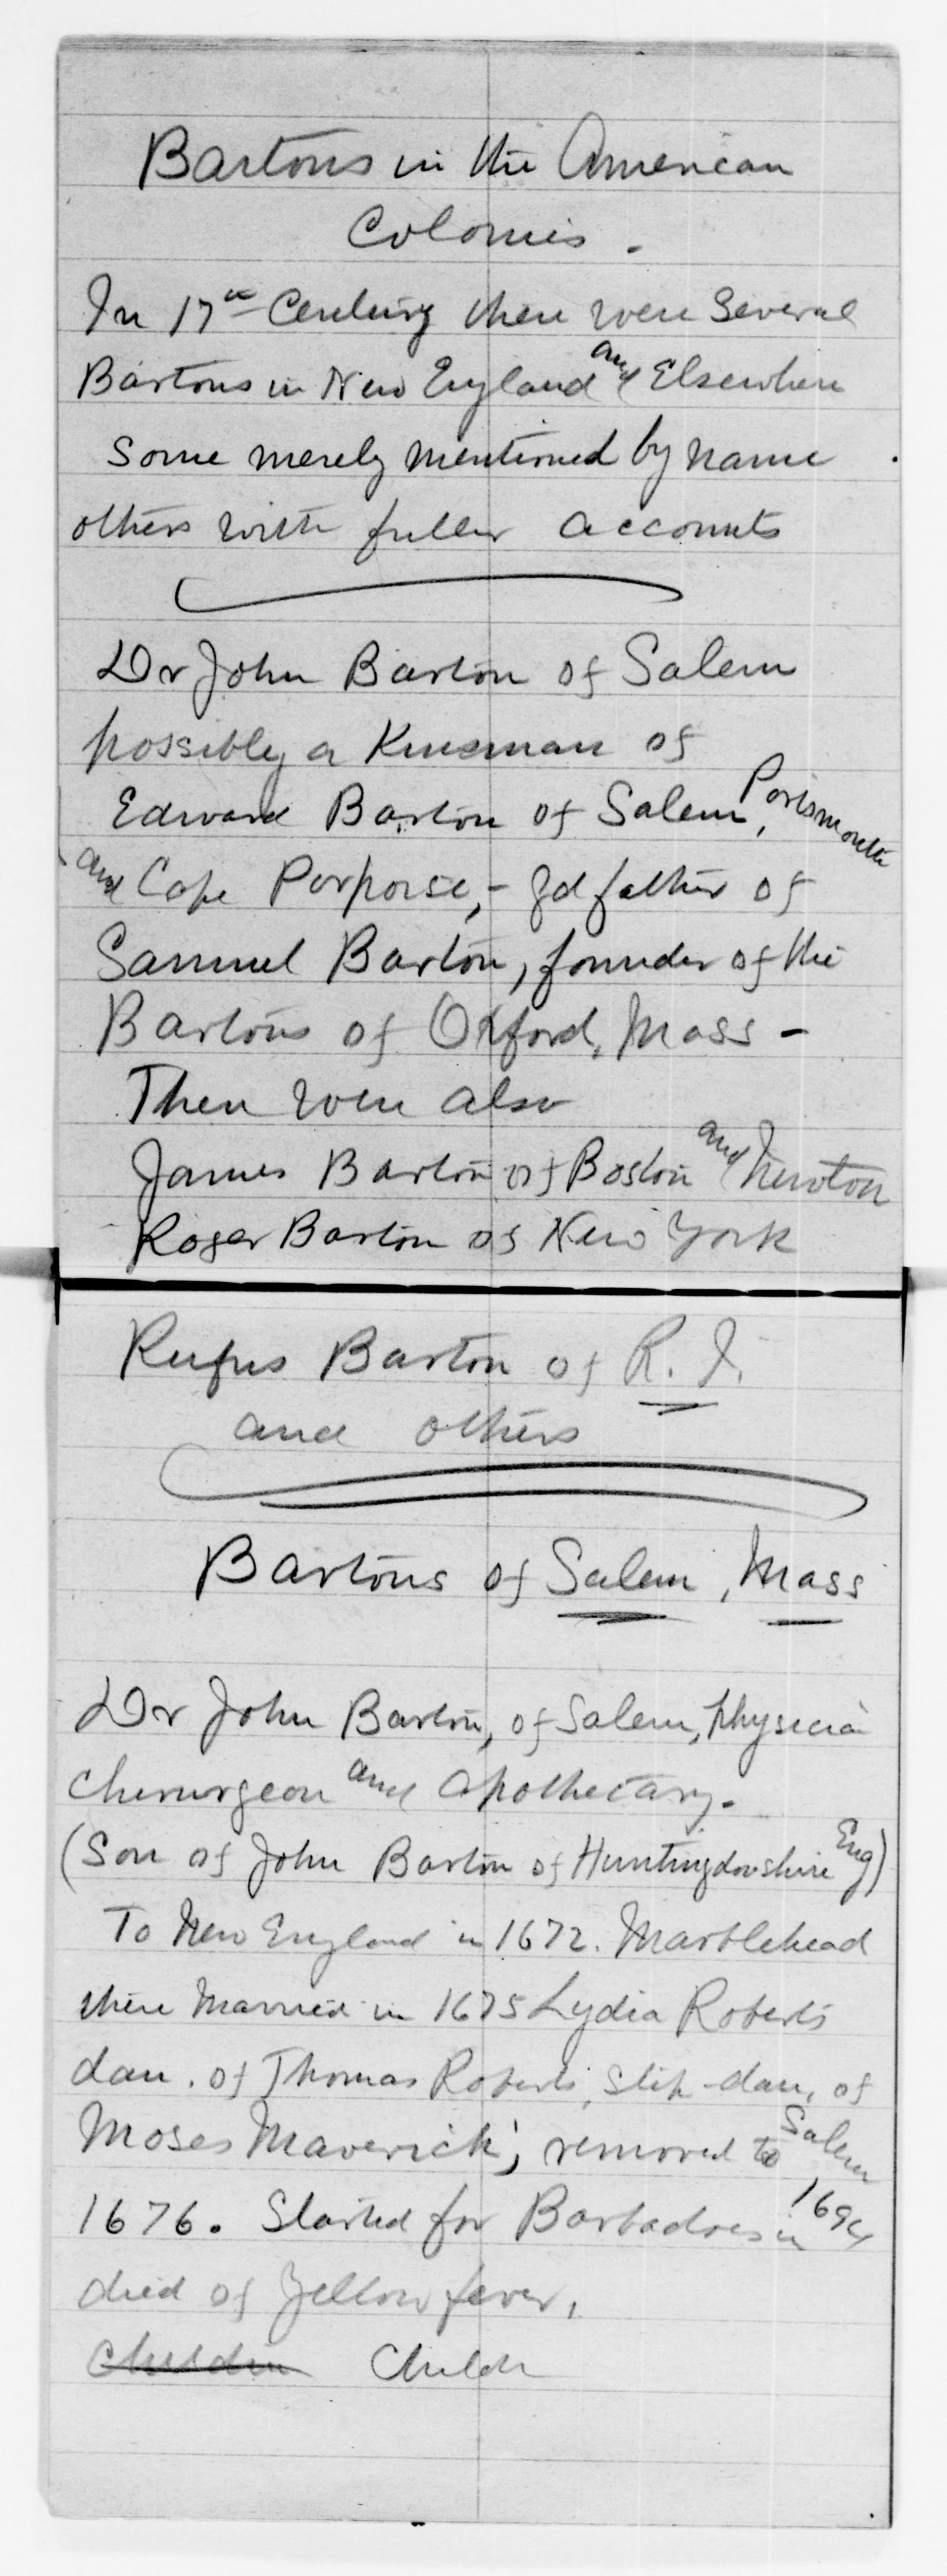 Bartons in the American
Colonies -
In 17th Century there were Several
Bartons in New England and Elsewhere
Some merely mentioned by name
others with fuller accounts
Dr John Barton of Salem
possibly a Kinsman of
Edward Barton of Salem, Portsmouth
and Cape Porpoise, - gd father of
Samuel Barton, founder of the
Bartons of Oxford, Mass -
There were also
James Barton of Boston and Newton
Roger Barton of New York
Rufus Barton of R. I.
and others
Bartons of Salem, Mass
Dr John Barton, of Salem, Physician
Chirurgeon and Apothecary.
(Son of John Barton of Huntingdonshire Eng)
To New England in 1672. Marblehead
there Married in 1675 Lydia Roberts
dau. of Thomas Roberts, step-dau, of
Moses Maverick; removed to Salem
1676. Started for Barbadoes in 1694
died of Yellow fever,
Children Childr